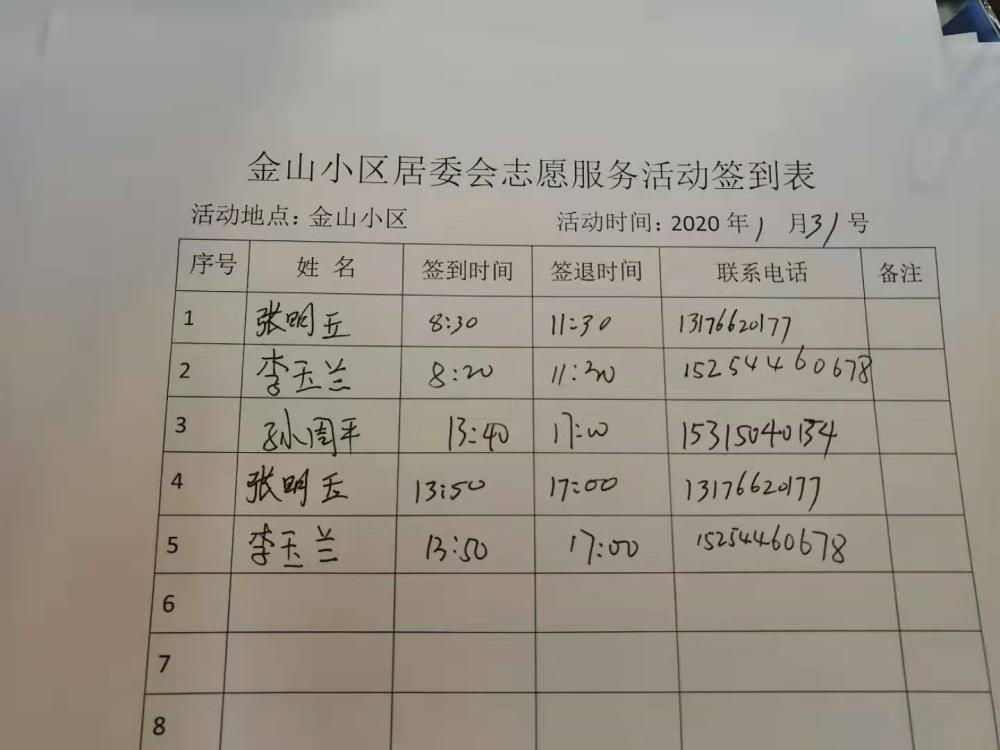 金山小区居委会志愿服务活动签到表
活动地点: 金山小区 活动时间: 2020 年 1 月 31 号
序号 姓 名 签到时间 签退时间 联系电话 备注
1 张明 8:30 11:30 13176620177
2 李玉兰 8:20 11:30 15254460678
3 孙周平 13:40 17:00 15315040134
4 张明 13:50 17:00 13176620177
5 李玉兰 13:50 17:00 15254460678
6
7
8